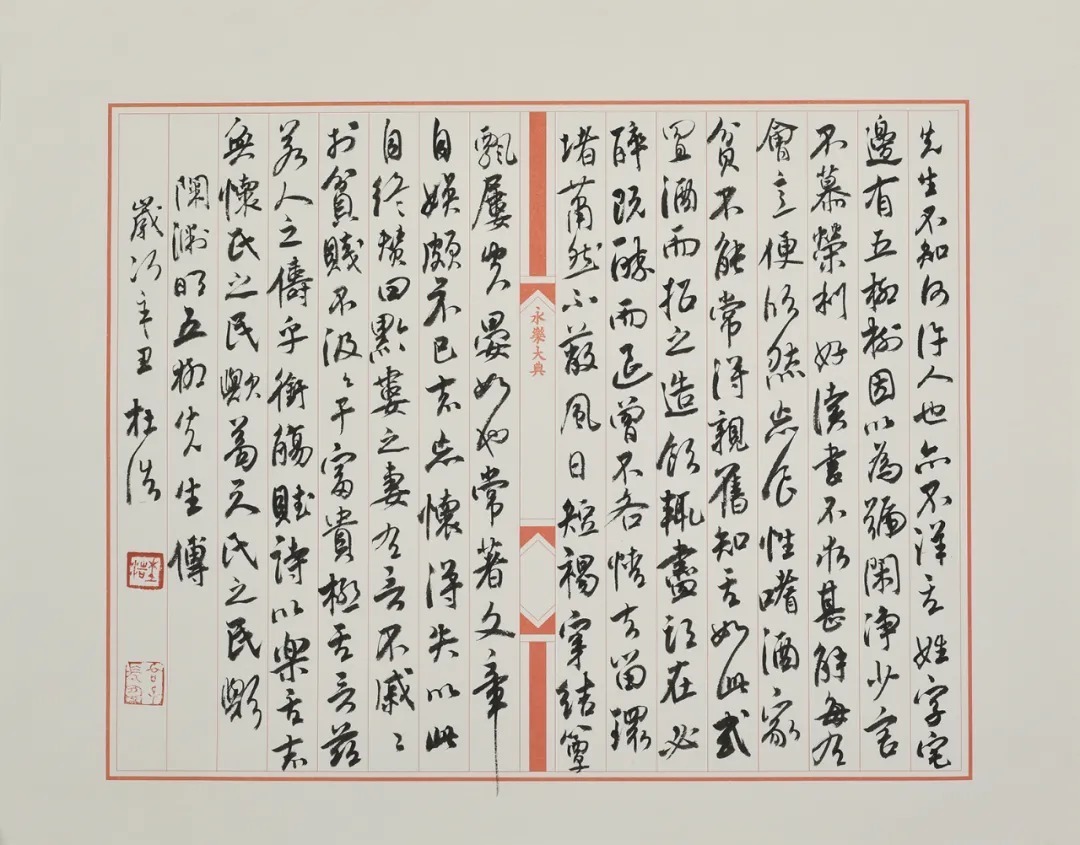 先生不知何許人也亦不詳其姓字宅
邊有五柳樹因以為號閑淨少言
不慕榮利好讀書不求甚解每有
會意便欣然忘食性嗜酒家
貧不能常得親舊知其如此或
置酒而招之造飲輒盡期在必
醉既醉而退曾不吝情去留環
堵蕭然不蔽風日短褐穿結簞
永樂大典
瓢屢空晏如也常著文章
自娛頗示己志忘懷得失以此
自終贊曰黔婁之妻有言不戚〻
於貧賤不汲〻于富貴極其言茲
若人之儔乎銜觴賦詩以樂其志
無懷氏之民歟葛天氏之民歟
陶淵明五柳先生傳
歲次辛丑 杜浩
杜浩